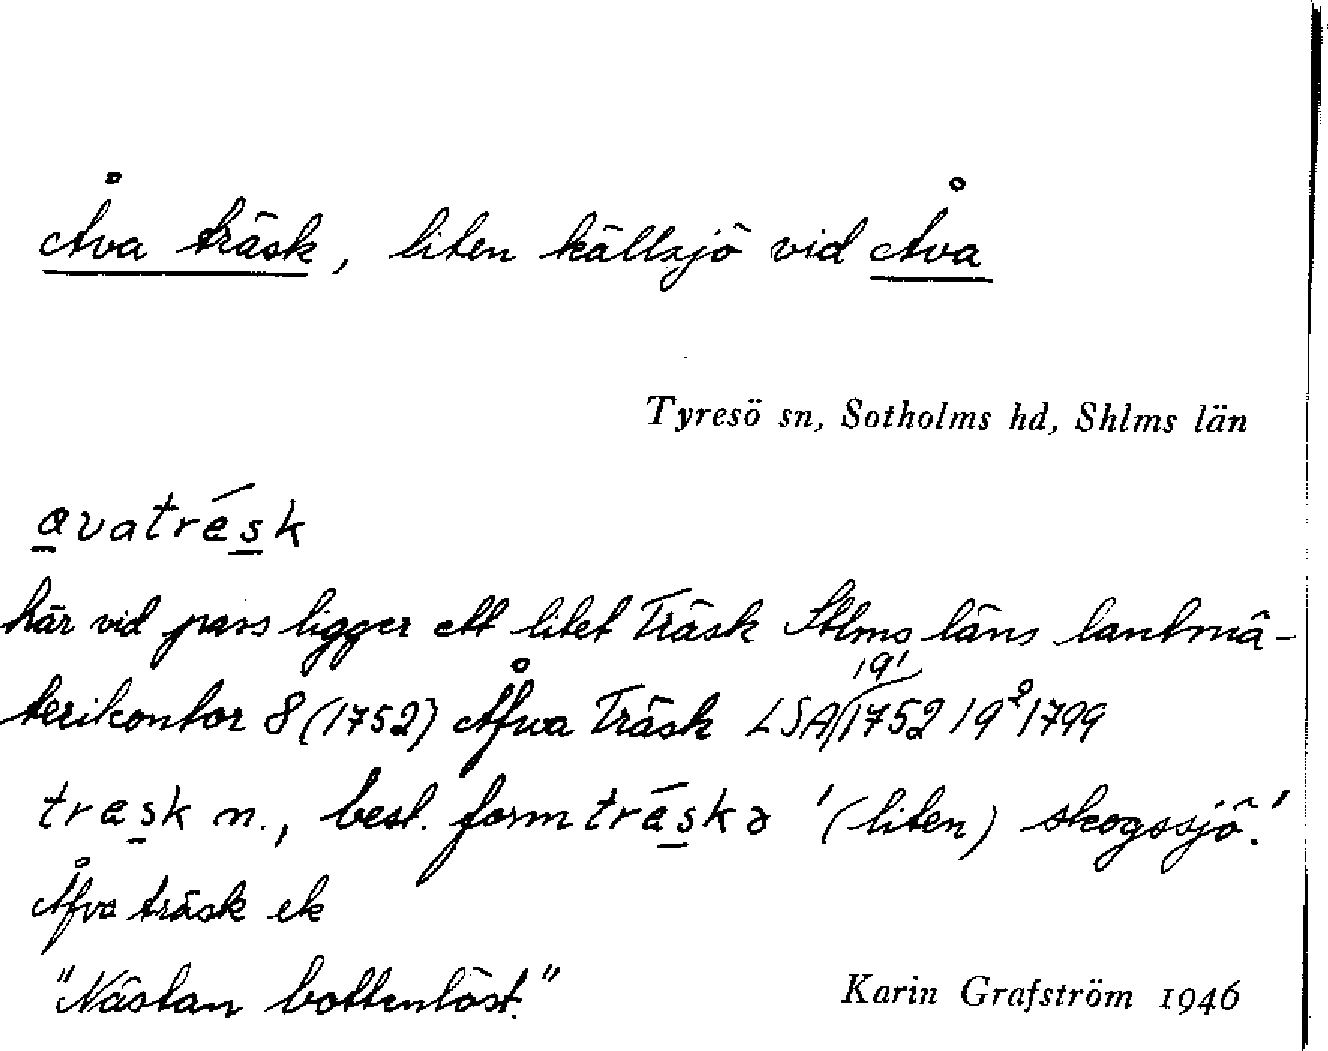 Åva träsk, liten källsjö vid Åva
Tyresö sn, Sotholms hd, Shlms län
avatrésk
här vid pass ligger ett litet Träsk Stlms läns lantmä-
terikontor 8 (1752) Åfwa Träsk LSA 19¹/1752 19²/1799
træsk n., best. form tréskə '(liten) skogssjö.'
Åfva träsk ek
"Nästan bottenlöst."
Karin Grafström 1946